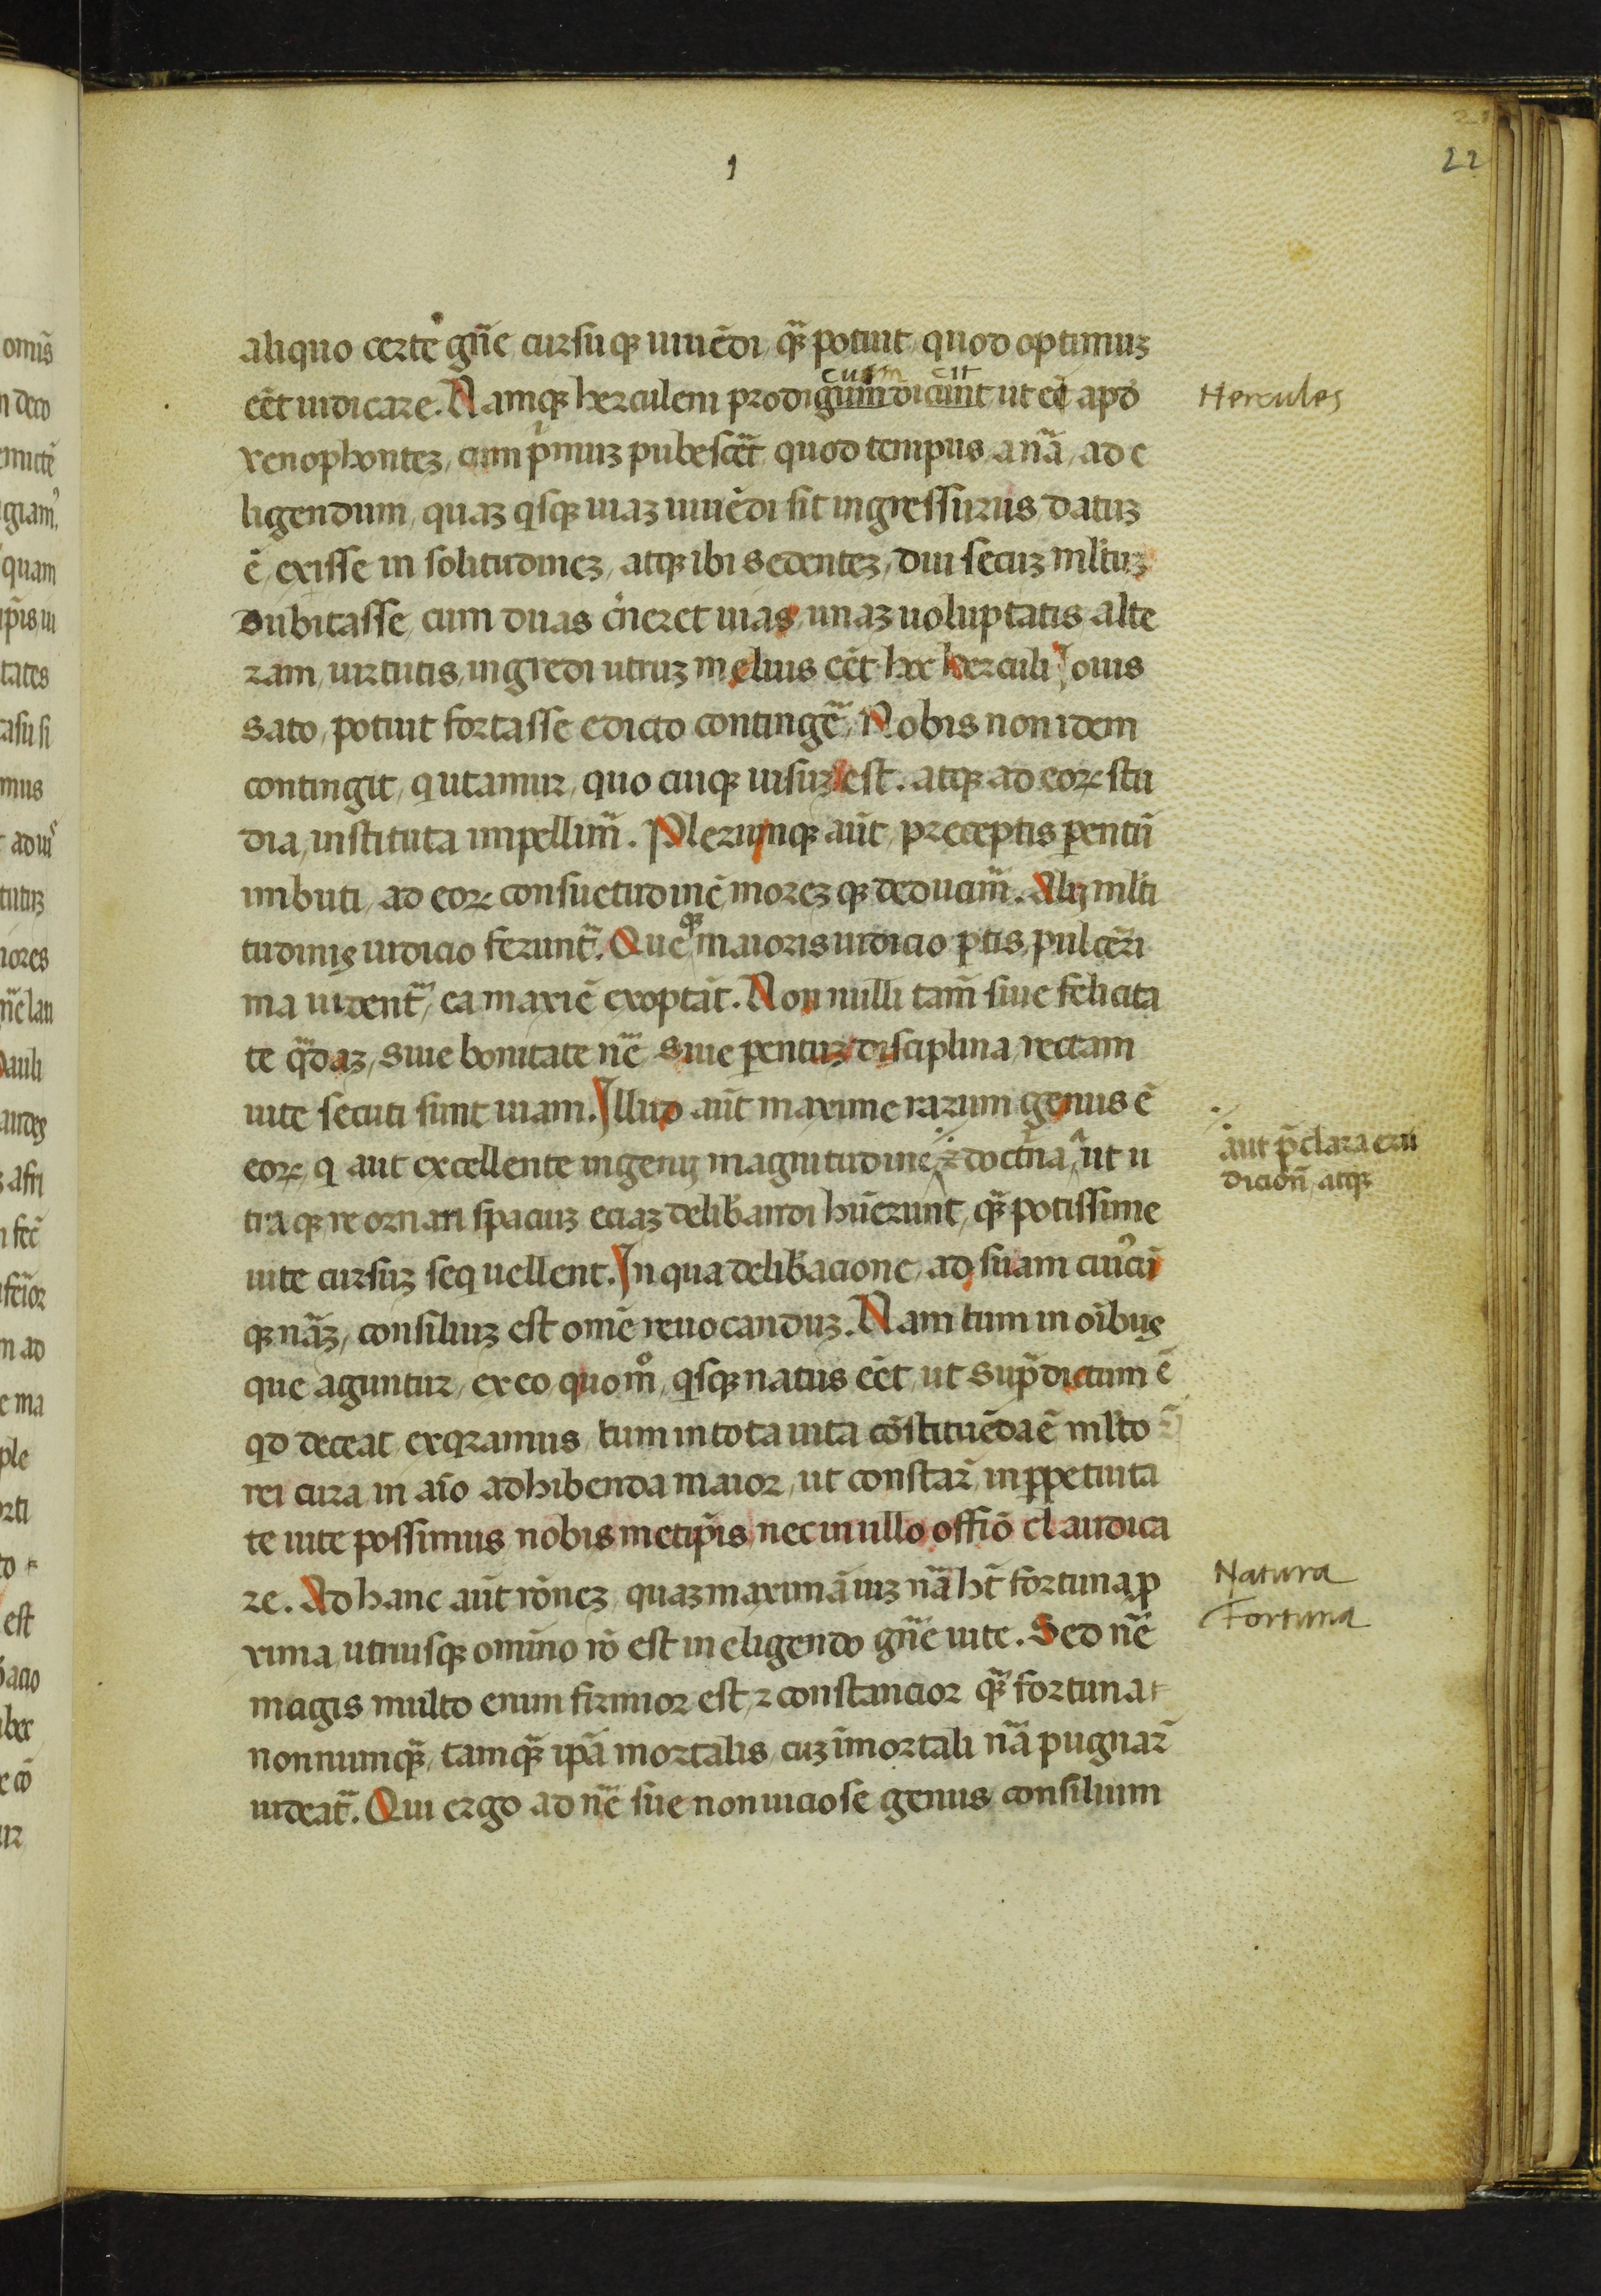 22
1
aliquo certe gn̄e cursuqꝫ uiuēdi qꝫ̄ potuit quod optimuꝫ
eēt iudicare. Namqꝫ herculem prodigum dicunt ut ē apd̄
cum cit
Hercules
xenophonteꝫ, cum pⁱmuꝫ pubescēt quod tempus a nā, ad e
ligendum, quaꝫ qisqꝫ uiaꝫ uiuēdi sit ingressurus, datuꝫ
ē, exisse in solitudineꝫ, atqꝫ ibi sedenteꝫ, diu secuꝫ ml̄tuꝫ
dubitasse, cum duas c̄neret uias, unaꝫ uoluptatis alte
ram, uirtutis, ingredi utruꝫ melius eēt. hec herculi Iouis
sato, potuit fortasse edicto continge͂, Nobis non idem
contingit, q utamur, quo cuiqꝫ uisuꝫ est. atqꝫ ad eoꝝ stu
dia, instituta impellim̄. Plerumqꝫ aūt, preceptis ꝑentū
imbuti, ad eoꝝ consuetudinē moreꝫqꝫ deducim̄. Alij ml̄ti
tudinis iudicio ferunt̄. Queqꝫ maioris iudicio ꝑtis, pulcer̄i
ma uident̄, ea maxiē exoptāt. Non nulli tam̄ siue felicita
te qͣ̄daꝫ, siue bonitate nē siue ꝑentuꝫ disciplina, rectam
uite secuti sunt uiam. Illud aūt maxime rarum genus ē
eoꝝ, q aut excellente ingenij magnitudine, ⁊ doctⁱna, ut u
aut p̄clara eru
dicion̄, atqꝫ
traqꝫ re ornari spaciuꝫ eciaꝫ deliƀandi hūerunt, qꝫ̄ potissime
uite cursuꝫ seq uellent. In qua deliƀacione, ad suam cuiꝰcū
qꝫ nāꝫ, consiliuꝫ est om̄e reuocanduꝫ. Nam tum in oībus
que aguntur, ex eo, quom̊, qisqꝫ natus eēt, ut sup̄dictum ē
qd deceat exqramus, tum in tota uita cōstituēda ē ml̄to
rei cura in aīo adhibenda maior, ut constar̄, in ꝑpetuita
te uite possimus nobismetip̄is, nec in ullo offīo claudica
re. Ad hanc aūt rōneꝫ, quaꝫ maximā uiꝫ nā ht̄ fortuna ꝓ
Natura
Fortuna
xima, utriusqꝫ omīno rō est in eligendo gn̄e uite. Sed nē
magis multo enim firmior est, ⁊ constancior qꝫ̄ fortuna
nonnumqꝫ̄, tamqꝫ̄ ip̄a mortalis, cuꝫ īmortali nā pugnar̄
uideat̄. Qui ergo ad nē sue non uiciose genus, consilium